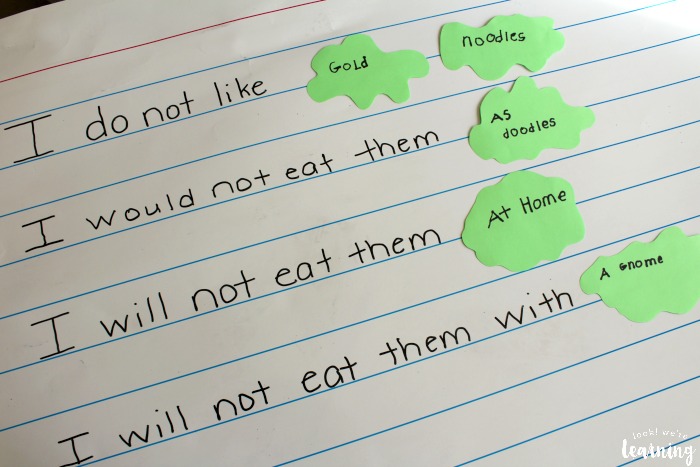 I do not like GOLD noodles
I would not eat them AS doodles
I will not eat them At Home
I will not eat them with A Gnome
look! we're
learning